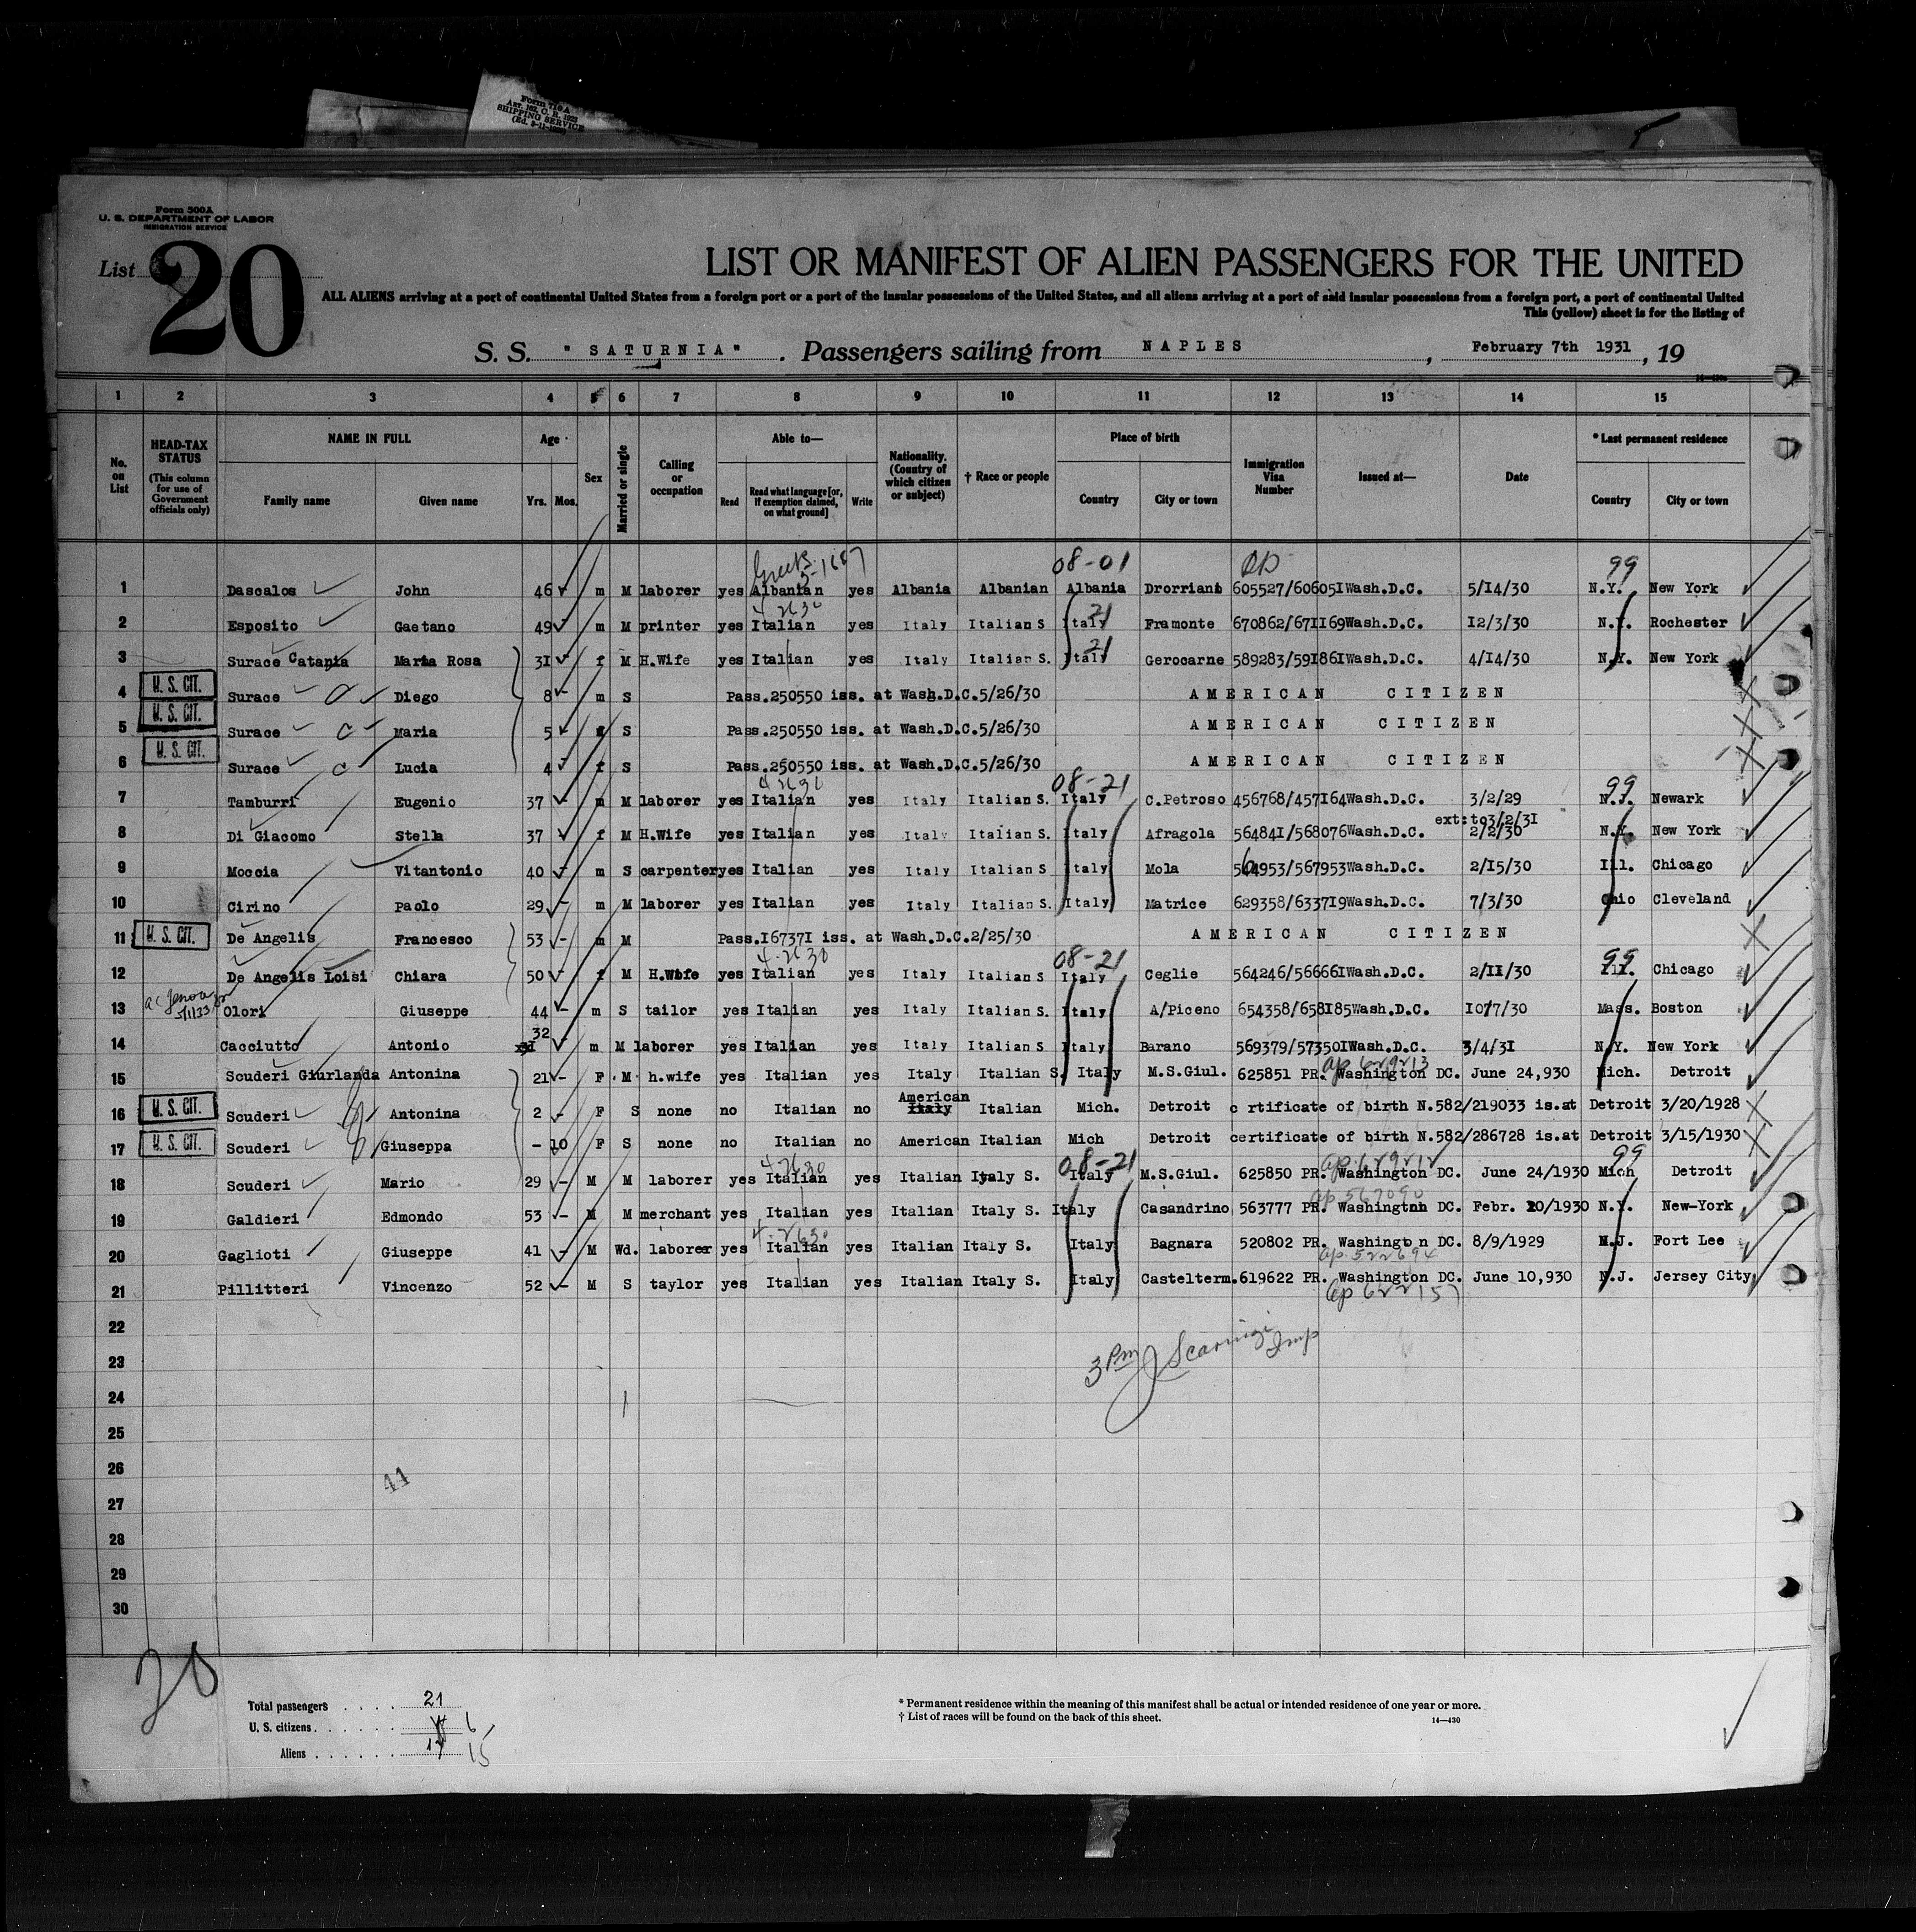 Form 710 A
Art. 162, C. R. 1923
SHIPPING SERVICE
Form 500A
U. S. DEPARTMENT OF LABOR
IMMIGRATION SERVICE
List 20
LIST OR MANIFEST OF ALIEN PASSENGERS FOR THE UNITED
ALL ALIENS arriving at a port of continental United States from a foreign port or a port of the insular possessions of the United States, and all aliens arriving at a port of said insular possessions from a foreign port, a port of continental United
This (yellow) sheet is for the listing of
S. S. " SATURNIA" . Passengers sailing from NAPLES , February 7th 1931 , 19
1 2 3 4 5 6 7 8 9 10 11 12 13 14 15
No. on List HEAD-TAX STATUS (This column for use of Government officials only) NAME IN FULL Family name Given name Age Yrs. Mos. Sex Married or single Calling or occupation Able to— Read Read what language [or, if exemption claimed, on what ground] Write Nationality. (Country of which citizen or subject) † Race or people Place of birth Country City or town Immigration Visa Number Issued at— Date * Last permanent residence Country City or town
Greek 5-1687 08-01 99
1 Dascalos John 46 m M laborer yes Albanian yes Albania Albanian Albania 605527/606051 Wash.D.C. 5/14/30 N.Y. New York
4 2630 21
2 Esposito Gaetano 49 m M printer yes Italian yes Italy Italian S Italy Framonte 670862/671169 Wash.D.C. 12/3/30 N.Y. Rochester
21
3 Surace Catania Maria Rosa 31 f M H.Wife yes Italian yes Italy Italian S. Italy Gerocarne 589283/591861 Wash.D.C. 4/14/30 N.Y. New York
4 U. S. CIT. Surace C Diego 8 m S Pass.250550 iss. at Wash.D.C.5/26/30 AMERICAN CITIZEN
5 U. S. CIT. Surace C Maria 5 f S Pass.250550 iss. at Wash.D.C.5/26/30 AMERICAN CITIZEN
6 U. S. CIT. Surace C Lucia 4 f S Pass.250550 iss. at Wash.D.C.5/26/30 AMERICAN CITIZEN
4 2630 08-21 99
7 Tamburri Eugenio 37 m M laborer yes Italian yes Italy Italian S. Italy C.Petroso 456768/457164 Wash.D.C. 3/2/29 N.J. Newark
ext:to3/2/31
8 Di Giacomo Stella 37 f M H.Wife yes Italian yes Italy Italian S. Italy Afragola 564841/568076 Wash.D.C. 2/2/30 N.Y. New York
9 Moccia Vitantonio 40 m S carpenter yes Italian yes Italy Italian S Italy Mola 564953/567953 Wash.D.C. 2/15/30 Ill. Chicago
10 Cirino Paolo 29 m M laborer yes Italian yes Italy Italian S. Italy Matrice 629358/633719 Wash.D.C. 7/3/30 Ohio Cleveland
11 U. S. CIT. De Angelis Francesco 53 m M Pass.167371 iss. at Wash.D.C.2/25/30 AMERICAN CITIZEN
4-2630 08-21 99
12 De Angelis Loisi Chiara 50 f M H.Wife yes Italian yes Italy Italian S Italy Ceglie 564246/566661 Wash.D.C. 2/11/30 Ill. Chicago
13 Olori Giuseppe 44 m S tailor yes Italian yes Italy Italian S. Italy A/Piceno 654358/658185 Wash.D.C. 10/7/30 Mass. Boston
32
14 Cacciutto Antonio m M laborer yes Italian yes Italy Italian S Italy Barano 569379/573501 Wash.D.C. 3/4/31 N.Y. New York
ap 629213
15 Scuderi Giurlanda Antonina 21 F M h.wife yes Italian yes Italy Italian S. Italy M.S.Giul. 625851 PR. Washington DC. June 24,930 Mich. Detroit
American
16 U. S. CIT. Scuderi Antonina 2 - F S none no Italian no Italy Italian Mich. Detroit c rtificate of birth N.582/219033 is.at Detroit 3/20/1928
17 U. S. CIT. Scuderi Giuseppa - 10 F S none no Italian no American Italian Mich Detroit certificate of birth N.582/286728 is.at Detroit 3/15/1930
4-2630 08-21 ap 629212 99
18 Scuderi Mario 29 - M M laborer yes Italian yes Italian Italy S. Italy M.S.Giul. 625850 PR. Washington DC. June 24/1930 Mich Detroit
ap 567090
19 Galdieri Edmondo 53 - M M merchant yes Italian yes Italian Italy S. Italy Casandrino 563777 PR. Washington DC. Febr. 20/1930 N.Y. New-York
4-2630
20 Gaglioti Giuseppe 41 - M Wd. laborer yes Italian yes Italian Italy S. Italy Bagnara 520802 PR. Washington DC. 8/9/1929 N.J. Fort Lee
ap 522694
21 Pillitteri Vincenzo 52 - M S taylor yes Italian yes Italian Italy S. Italy Castelterm. 619622 PR. Washington DC. June 10,930 N.J. Jersey City
ap 622157
22
3 Pm
23
24
25
26
44
27
28
29
30
20
Total passengers 21
U. S. citizens 6
Aliens 15
* Permanent residence within the meaning of this manifest shall be actual or intended residence of one year or more.
† List of races will be found on the back of this sheet.
14—430